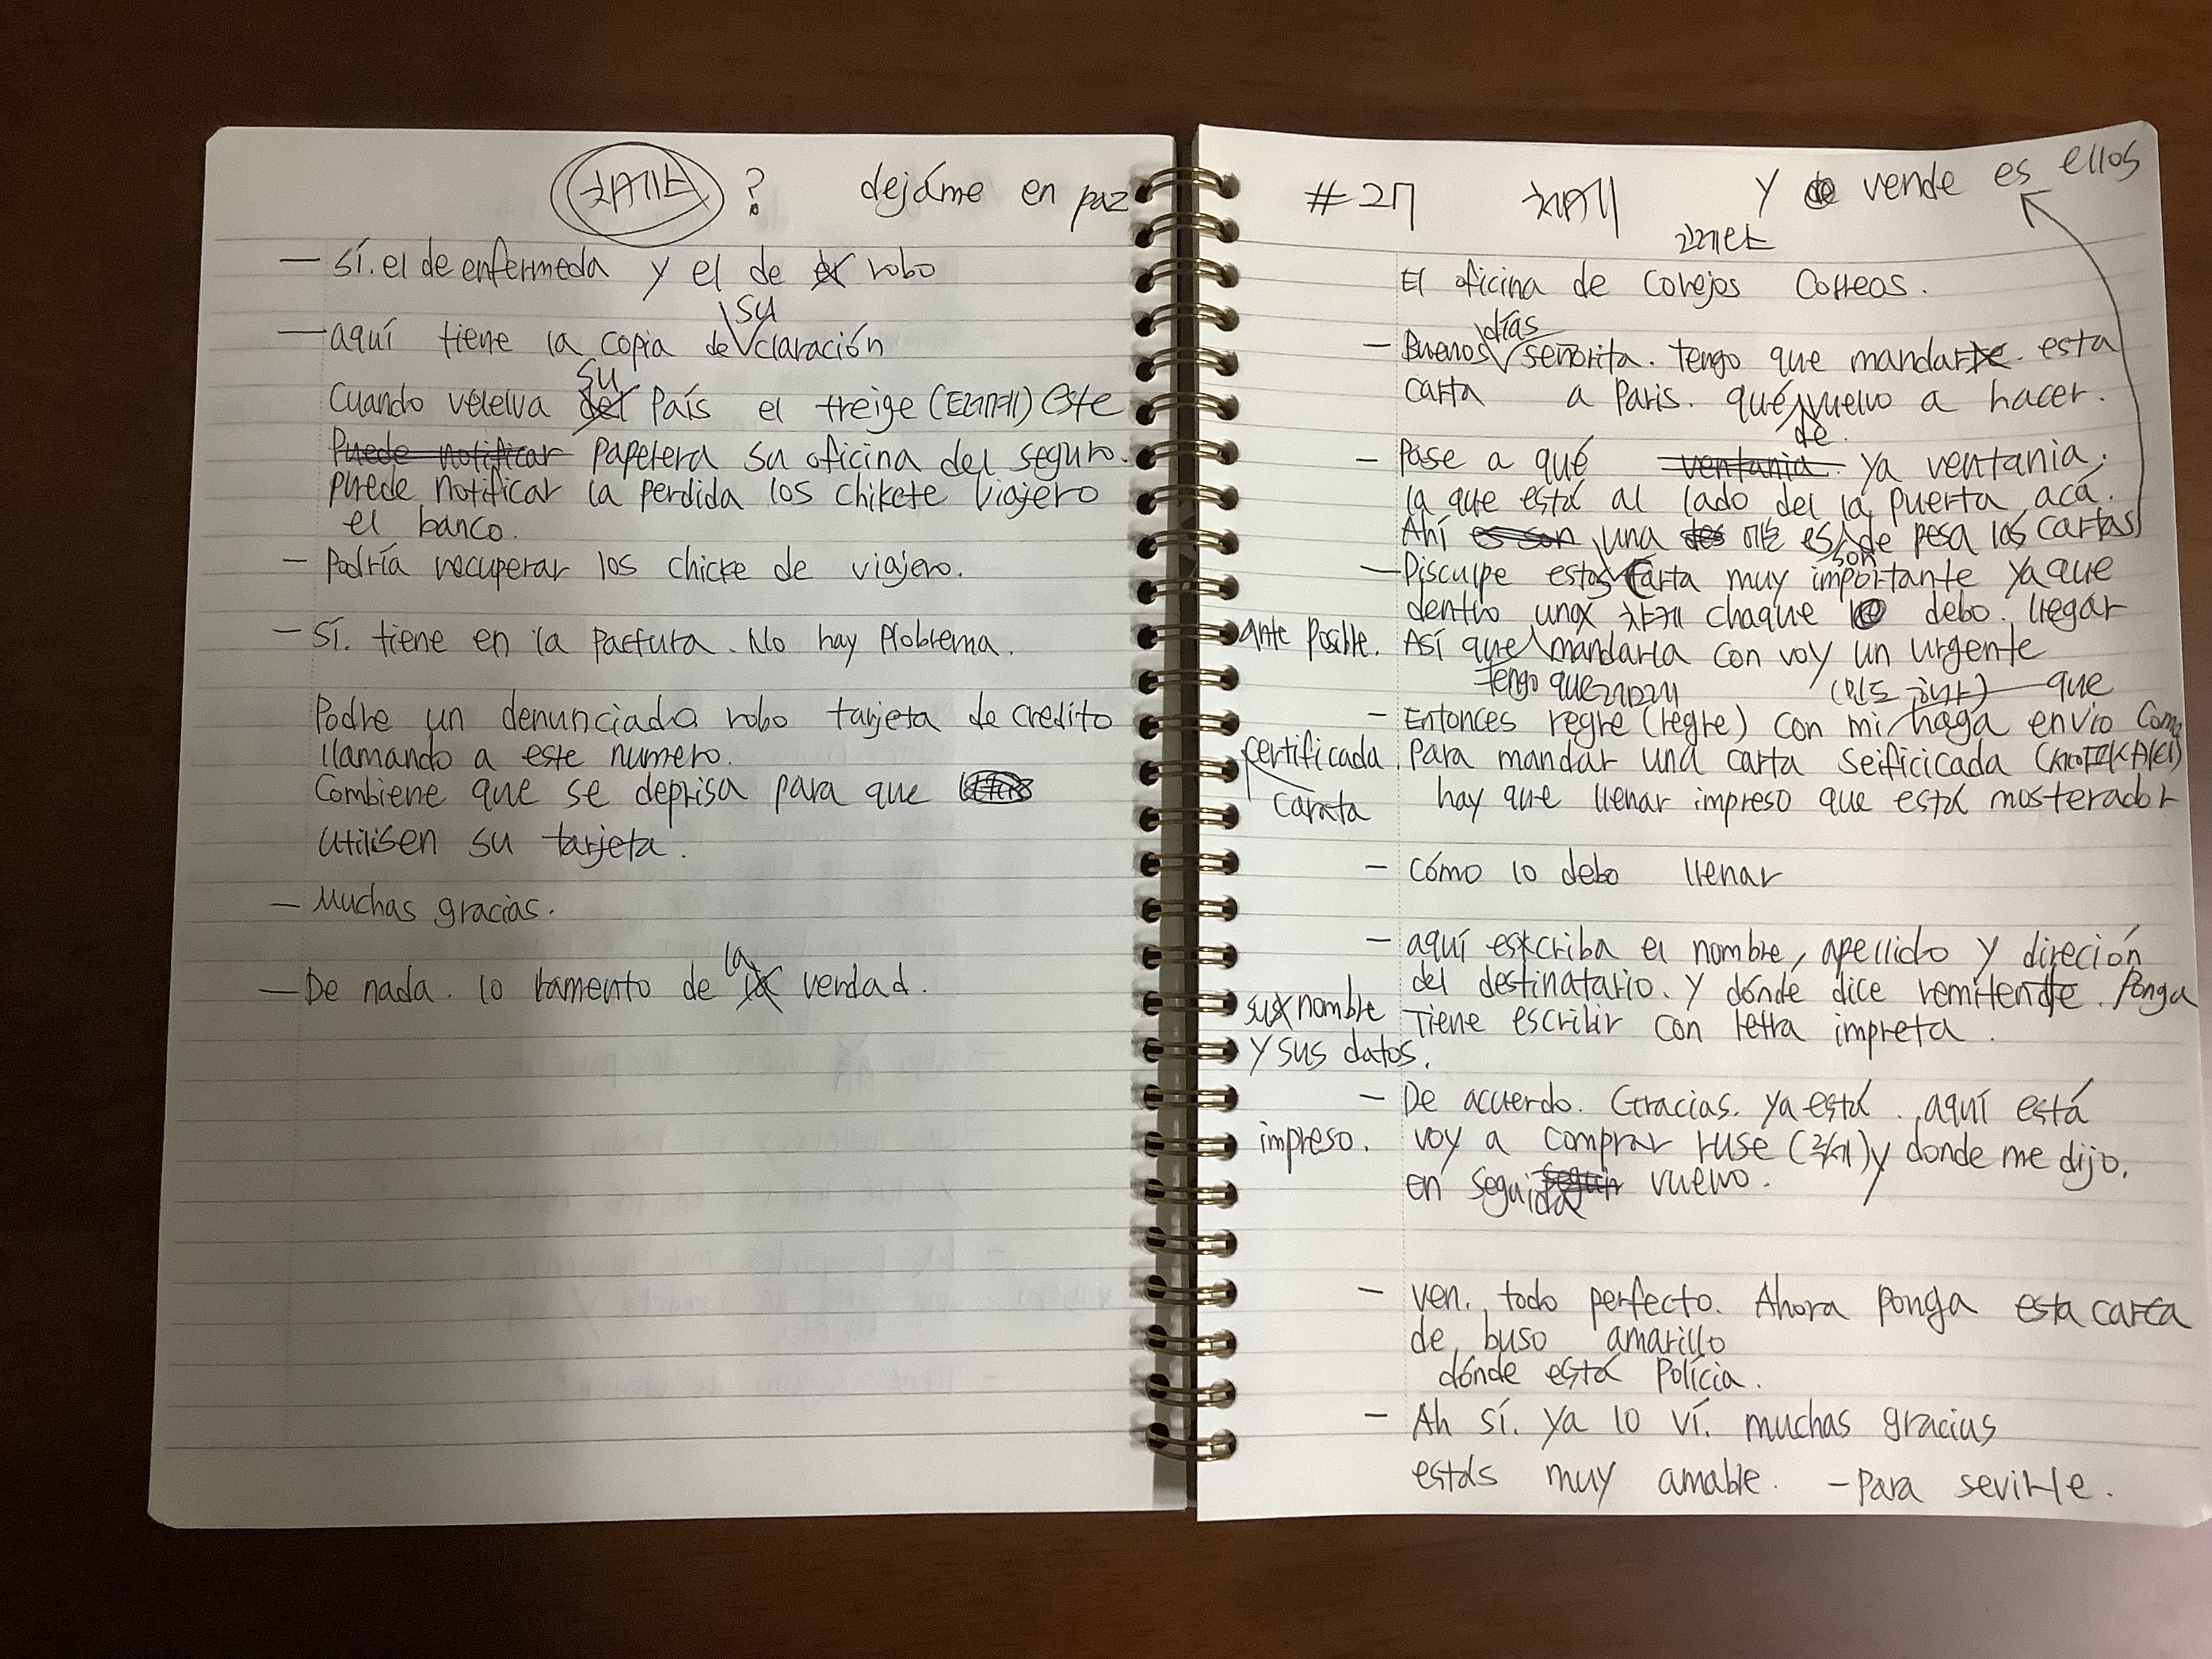 ? dejáme en paz
— Sí. el de enfermeda y el de robo
su
— aquí tiene la copia de claración
su
Cuando vuelva país el treige este
Puede notificar papelera su oficina del seguro.
puede notificar la perdida los chikete viajero
el banco.
— Podría recuperar los chicke de viajero.
— Sí. tiene en la Pactura. No hay Problema.
Podre un denunciada robo tarjeta de credito
llamando a este numero.
Combiene que se deprisa para que
utilisen su tarjeta.
— Muchas gracias.
la
— De nada. lo lamento de verdad.
#27 차페키 y vende es ellos
El oficina de Conejos Correos.
días
— Buenos señorita. Tengo que mandar esta
carta a Paris. qué vuelvo a hacer.
de
— Pase a qué ventania ya ventania.
la que está al lado del la puerta acá.
Ahí es son una es de pesa los cartas
son
— Disculpe estas Carta muy importante ya que
dentro una chaque debo. llegar
ante posible. Así que mandarla con voy un urgente
Tengo que que
— Entonces regre (regre) con mi haga envio Com
certificada. Para mandar una carta seificicada
carata hay que llenar impreso que está mosterador
— Cómo lo debo llenar
— aquí escriba el nombre, apellido y direción
del destinatario. y dónde dice remitente. Ponga
sus nombre Tiene escribir con letra impreta.
y sus datos.
— De acuerdo. Gracias. ya está. aquí está
impreso. voy a comprar ruse (루세) y donde me dijo.
en seguida vuelvo.
— ven. todo perfecto. Ahora ponga esta carta
de buso amarillo
dónde está Polícia.
— Ah sí. ya lo ví. muchas gracias
estás muy amable. — Para seville.